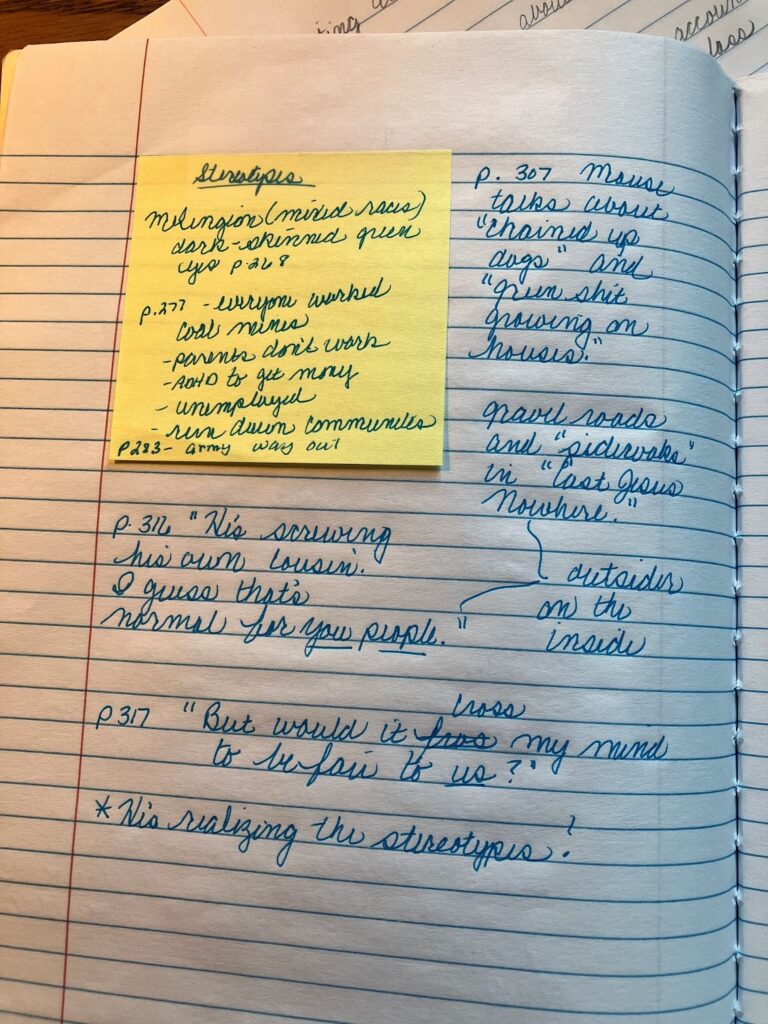 ting
about
account
loss
Stereotypes
Melengion (mixed races)
dark-skinned green
yes p. 268
p. 277 - everyone worked
coal mines
- parents don't work
- ADHD to get money
- unemployed
- run down communities
p 283 - army way out
p. 307 Mouse
talks about
"chained up
dogs" and
"green shit
growing on
houses."
gravel roads
and "sidewaks"
in "Cast Jesus
Nowhere."
outsider
on the
inside
p. 316 "His screwing
his own cousin.
I guess that's
normal for you people."
p 317 "But would it cross my mind
to be fair to us?"
* His realizing the stereotypes.